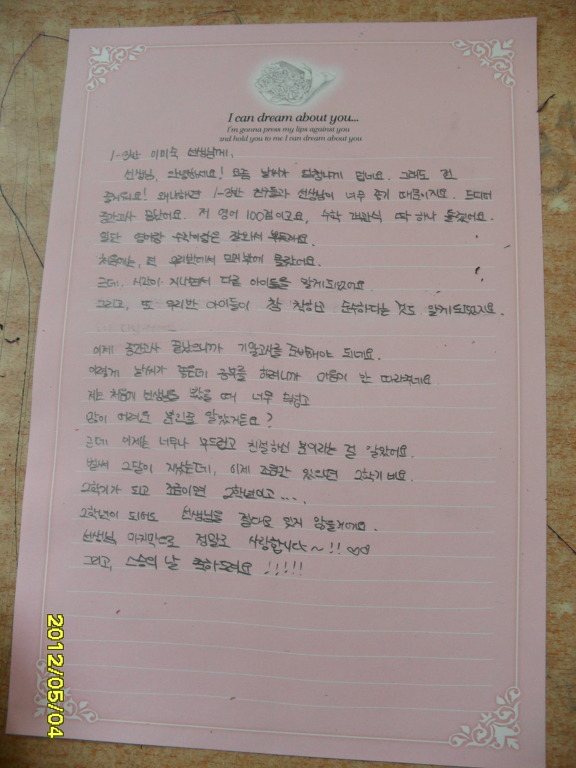 I can dream about you...
I'm gonna press my lips against you
and hold you to me I can dream about you
선생님, 안녕하세요! 요즘 날씨가 덥네요. 그래도 전
즐거워요! 왜냐하면 1-9반 친구들과 선생님이 너무 좋기 때문이지요. 드디어
중간고사 끝났어요. 저 영어 100점이고요, 수학 객관식 딱 하나 틀렸어요.
일단
처음에는,
근데, 시간이 지나면서 다른 아이들을 알게되었어요
그리고, 또 우리반 아이들이 참 착하고 순수하다는 것도 알게되었지요.
이제 중간고사 끝났으니까 기말고사를 준비해야 되네요.
이렇게 날씨가 좋은데 공부를 하려니까 마음이 안 따라주네요
저는 처음에 선생님을 봤을 때 너무 무섭고
많이 어려운 분인줄 알았거든요?
근데 이제는 너무나 부드럽고 친절하신 분이라는 걸 알았어요.
벌써 2달이 지났는데, 이제 조금만 있으면 2학기네요.
2학기가 되고 조금이면 2학년이고....
2학년이 되어도 선생님을 절대로 잊지 않을거에요.
선생님, 마지막으로 정말로 사랑합니다~!! ♡♡
그리고, 스승의 날 축하드려요 !!!!!
2012/05/04